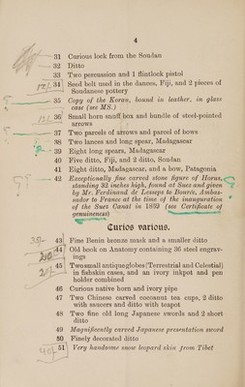 4
31 Curious lock from the Soudan
32 Ditto
33 Two percussion and 1 flintlock pistol
34 Seed belt used in the dances, Fiji, and 2 pieces of
Soudanese pottery
35 Copy of the Koran, bound in leather, in glass
case (see MS.)
36 Small horn snuff box and bundle of steel-pointed
arrows
37 Two parcels of arrows and parcel of bows
38 Two lances and long spear, Madagascar
39 Eight long spears, Madagascar
40 Five ditto, Fiji, and 2 ditto, Soudan
41 Eight ditto, Madagascar, and a bow, Patagonia
42 Exceptionally fine carved stone figure of Horus,
standing 32 inches high, found at Suez and given
by Mr. Ferdinand de Lesseps to Bourée, Ambas-
sador to France at the time of the inauguration
of the Suez Canal in 1859 (see Certificate of
genuineness)
Curios various.
43 Fine Benin bronze mask and a smaller ditto
44 Old book on Anatomy containing 36 steel engrav-
ings
45 Two small antique globes (Terrestrial and Celestial)
in fishskin cases, and an ivory inkpot and pen
holder combined
46 Curious native horn and ivory pipe
47 Two Chinese carved cocoanut tea cups, 2 ditto
with saucers and ditto with teapot
48 Two fine old long Japanese swords and 2 short
ditto
49 Magnificently carved Japanese presentation sword
50 Finely decorated ditto
51 Very handsome snow leopard skin from Tibet